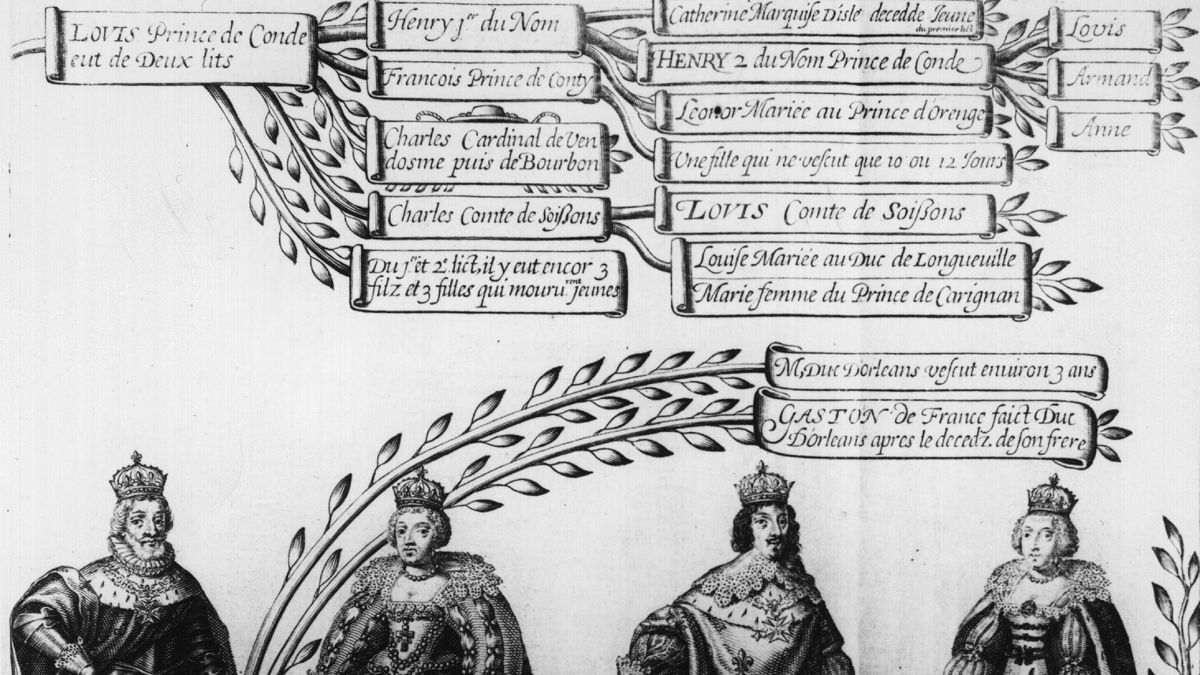 LOVIS Prince de Conde
eut de Deux lits
Henry jer du Nom
Francois Prince de Conty
Charles Cardinal de Ven
dosme puis de Bourbon
Charles Comte de Soißons
Du jer et 2e. lict, il y eut encor 3
filz et 3 filles qui moururent jeunes
Catherine Marquise D'isle decedde Jeune
du premier lict
HENRY 2 du Nom Prince de Conde
Leonor Mariée au Prince d'Orenge
Vne fille qui ne vescut que 10 ou 12 Jours
LOVIS Comte de Soißons
Louise Mariée au Duc de Longueuille
Marie femme du Prince de Carignan
Lovis
Armand
Anne
M, Duc D'orleans vescut enuiron 3 ans
GASTON de France faict Duc
D'orleans apres le decedz. de son frere